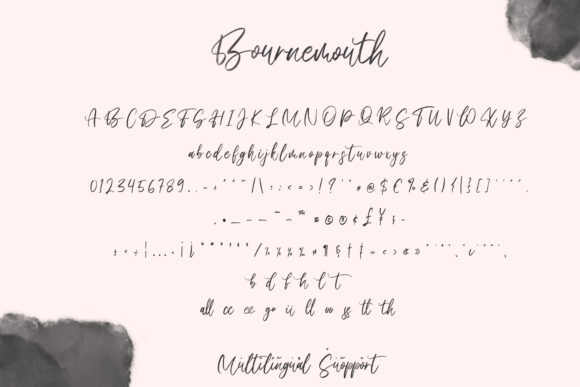 Bournemouth
A B C D E F G H I J K L M N O P Q R S T U V W X Y Z
a b c d e f g h i j k l m n o p q r s t u v w x y z
0 1 2 3 4 5 6 7 8 9 . , - + | \ : ; < = > ! ? * # @ $ € % & ( ) { | } [ ]
. • _ – — © ® ¢ £ ¥
± × ÷ ¦ … · ¡ ¡ / % ¶ § † ‡ ~ < >
b d f h l t
all cc ee go ii ll oo ss tt th
Multilingual Süöppört